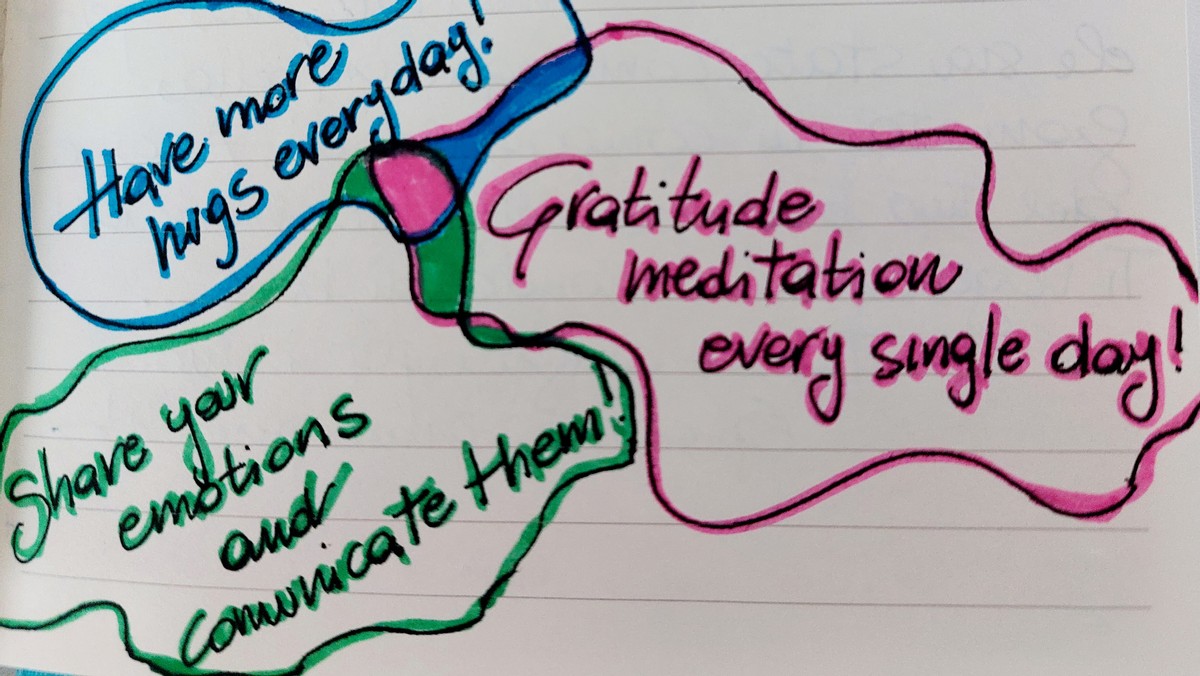 Have more
hugs everyday!
Gratitude
meditation
every single day!
Share your
emotions
and
comunicate them!